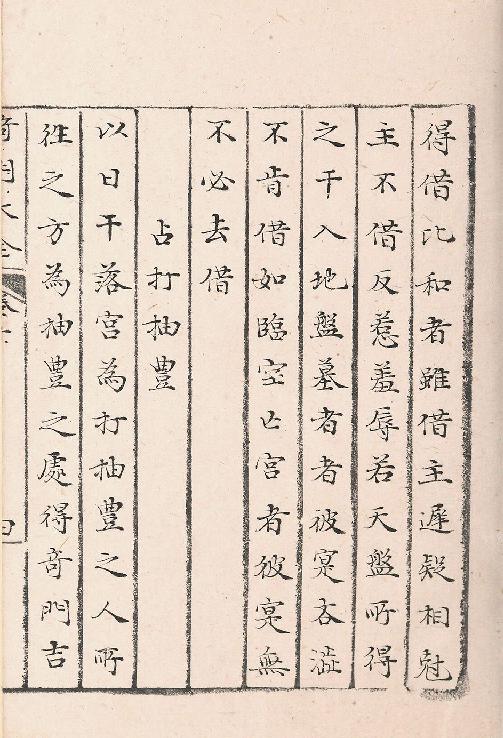 得借比和者雖借主遲疑相尅
主不借反惹羞辱若天盤所得
之干入地盤墓者者彼寔吝澁
不肯借如臨空亡宮者彼寔無
不必去借
占打抽豊
以日干落宮為打抽豊之人所
徃之方為抽豊之處得奇門吉
竒門大全